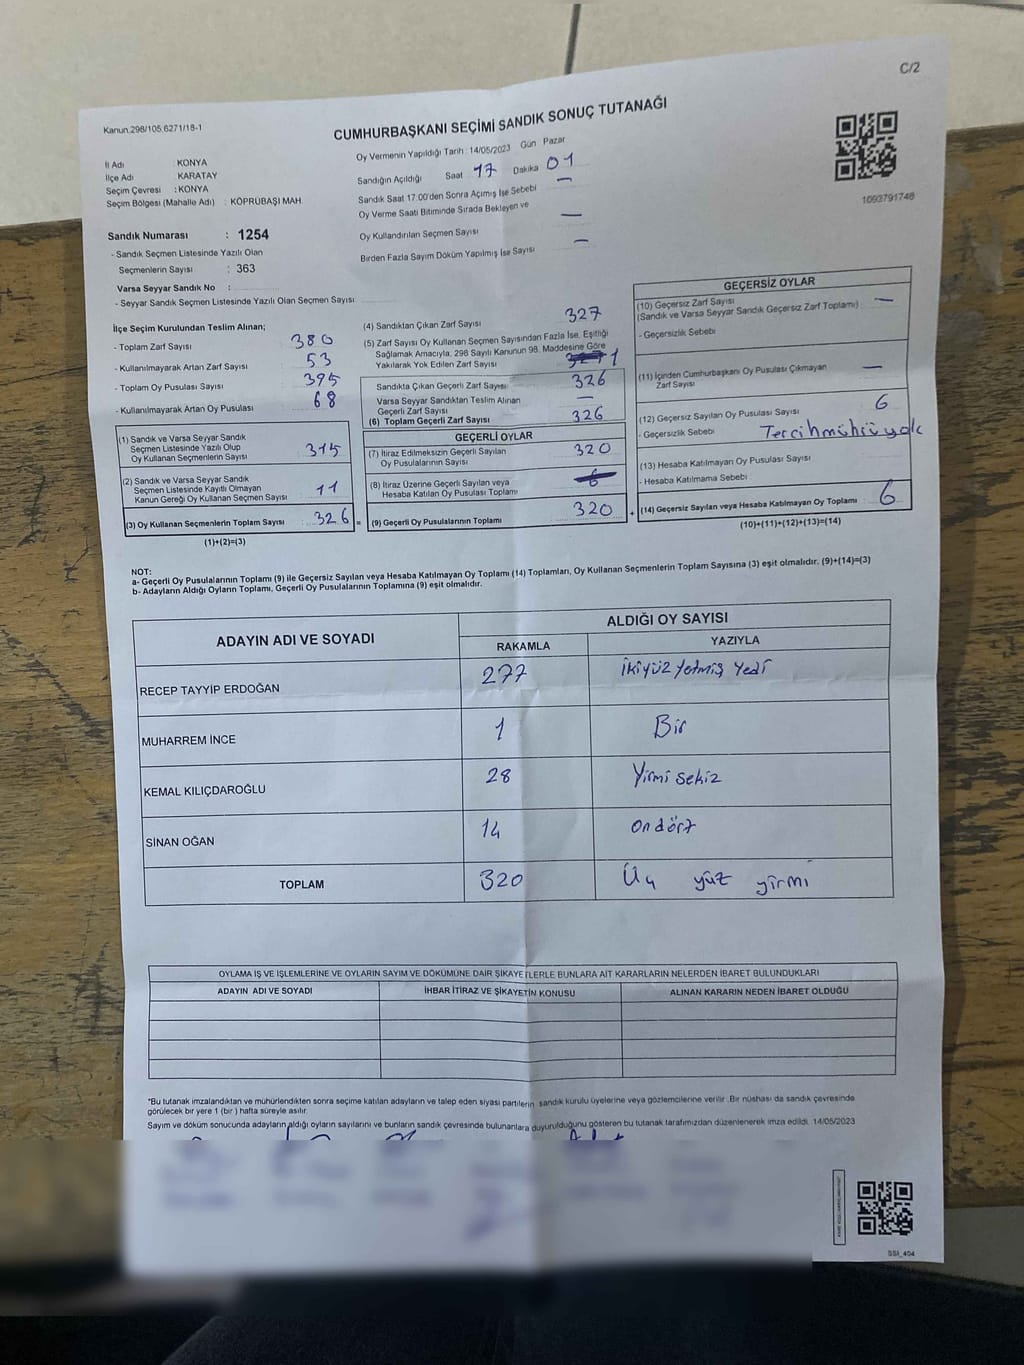 C/2
Kanun.298/105,6271/18-1
CUMHURBAŞKANI SEÇİMİ SANDIK SONUÇ TUTANAĞI
1093791748
İl Adı : KONYA
İlçe Adı : KARATAY
Seçim Çevresi : KONYA
Seçim Bölgesi (Mahalle Adı) : KÖPRÜBAŞI MAH.
Sandık Numarası : 1254
- Sandık Seçmen Listesinde Yazılı Olan
Seçmenlerin Sayısı : 363
Varsa Seyyar Sandık No :
- Seyyar Sandık Seçmen Listesinde Yazılı Olan Seçmen Sayısı
Oy Vermenin Yapıldığı Tarih : 14/05/2023 Gün Pazar
Sandığın Açıldığı Saat 17 Dakika 01
Sandık Saat 17:00'den Sonra Açımış İse Sebebi —
Oy Verme Saati Bitiminde Sırada Bekleyen ve
Oy Kullandırılan Seçmen Sayısı —
Birden Fazla Sayım Döküm Yapılmış İse Sayısı —
İlçe Seçim Kurulundan Teslim Alınan;
- Toplam Zarf Sayısı 380
- Kullanılmayarak Artan Zarf Sayısı 53
- Toplam Oy Pusulası Sayısı 395
- Kullanılmayarak Artan Oy Pusulası 68
(1) Sandık ve Varsa Seyyar Sandık
Seçmen Listesinde Yazılı Olup
Oy Kullanan Seçmenlerin Sayısı 315
(2) Sandık ve Varsa Seyyar Sandık
Seçmen Listesinde Kayıtlı Olmayan
Kanun Gereği Oy Kullanan Seçmen Sayısı 11
(3) Oy Kullanan Seçmenlerin Toplam Sayısı 326 =
(1)+(2)=(3)
(4) Sandıktan Çıkan Zarf Sayısı 327
(5) Zarf Sayısı Oy Kullanan Seçmen Sayısından Fazla İse, Eşitliği
Sağlamak Amacıyla, 298 Sayılı Kanunun 98. Maddesine Göre
Yakılarak Yok Edilen Zarf Sayısı 1
Sandıkta Çıkan Geçerli Zarf Sayısı 326
Varsa Seyyar Sandıktan Teslim Alınan
Geçerli Zarf Sayısı —
(6) Toplam Geçerli Zarf Sayısı 326
GEÇERLİ OYLAR
(7) İtiraz Edilmeksizin Geçerli Sayılan
Oy Pusulalarının Sayısı 320
(8) İtiraz Üzerine Geçerli Sayılan veya
Hesaba Katılan Oy Pusulası Toplamı 6
(9) Geçerli Oy Pusulalarının Toplamı 320 +
GEÇERSİZ OYLAR
(10) Geçersiz Zarf Sayısı
(Sandık ve Varsa Seyyar Sandık Geçersiz Zarf Toplamı) —
- Geçersizlik Sebebi
(11) İçinden Cumhurbaşkanı Oy Pusulası Çıkmayan
Zarf Sayısı —
(12) Geçersiz Sayılan Oy Pusulası Sayısı 6
- Geçersizlik Sebebi Tercihmührüyok
(13) Hesaba Katılmayan Oy Pusulası Sayısı
- Hesaba Katılmama Sebebi
(14) Geçersiz Sayılan veya Hesaba Katılmayan Oy Toplamı 6
(10)+(11)+(12)+(13)=(14)
NOT:
a- Geçerli Oy Pusulalarının Toplamı (9) ile Geçersiz Sayılan veya Hesaba Katılmayan Oy Toplamı (14) Toplamları, Oy Kullanan Seçmenlerin Toplam Sayısına (3) eşit olmalıdır. (9)+(14)=(3)
b- Adayların Aldığı Oyların Toplamı, Geçerli Oy Pusulalarının Toplamına (9) eşit olmalıdır.
ADAYIN ADI VE SOYADI ALDIĞI OY SAYISI
RAKAMLA YAZIYLA
RECEP TAYYİP ERDOĞAN 277 ikiyüz Yetmiş Yedi
MUHARREM İNCE 1 Bir
KEMAL KILIÇDAROĞLU 28 Yirmi sekiz
SİNAN OĞAN 14 ondört
TOPLAM 320 Üç yüz yirmi
OYLAMA İŞ VE İŞLEMLERİNE VE OYLARIN SAYIM VE DÖKÜMÜNE DAİR ŞİKAYETLERLE BUNLARA AİT KARARLARIN NELERDEN İBARET BULUNDUKLARI
ADAYIN ADI VE SOYADI İHBAR İTİRAZ VE ŞİKAYETİN KONUSU ALINAN KARARIN NEDEN İBARET OLDUĞU
*Bu tutanak imzalandıktan ve mühürlendikten sonra seçime katılan adayların ve talep eden siyasi partilerin sandık kurulu üyelerine veya gözlemcilerine verilir. Bir nüshası da sandık çevresinde
görülecek bir yere 1 (bir) hafta süreyle asılır.
Sayım ve döküm sonucunda adayların aldığı oyların sayılarını ve bunların sandık çevresinde bulunanlara duyurulduğunu gösteren bu tutanak tarafımızdan düzenlenerek imza edildi. 14/05/2023
SSI_404